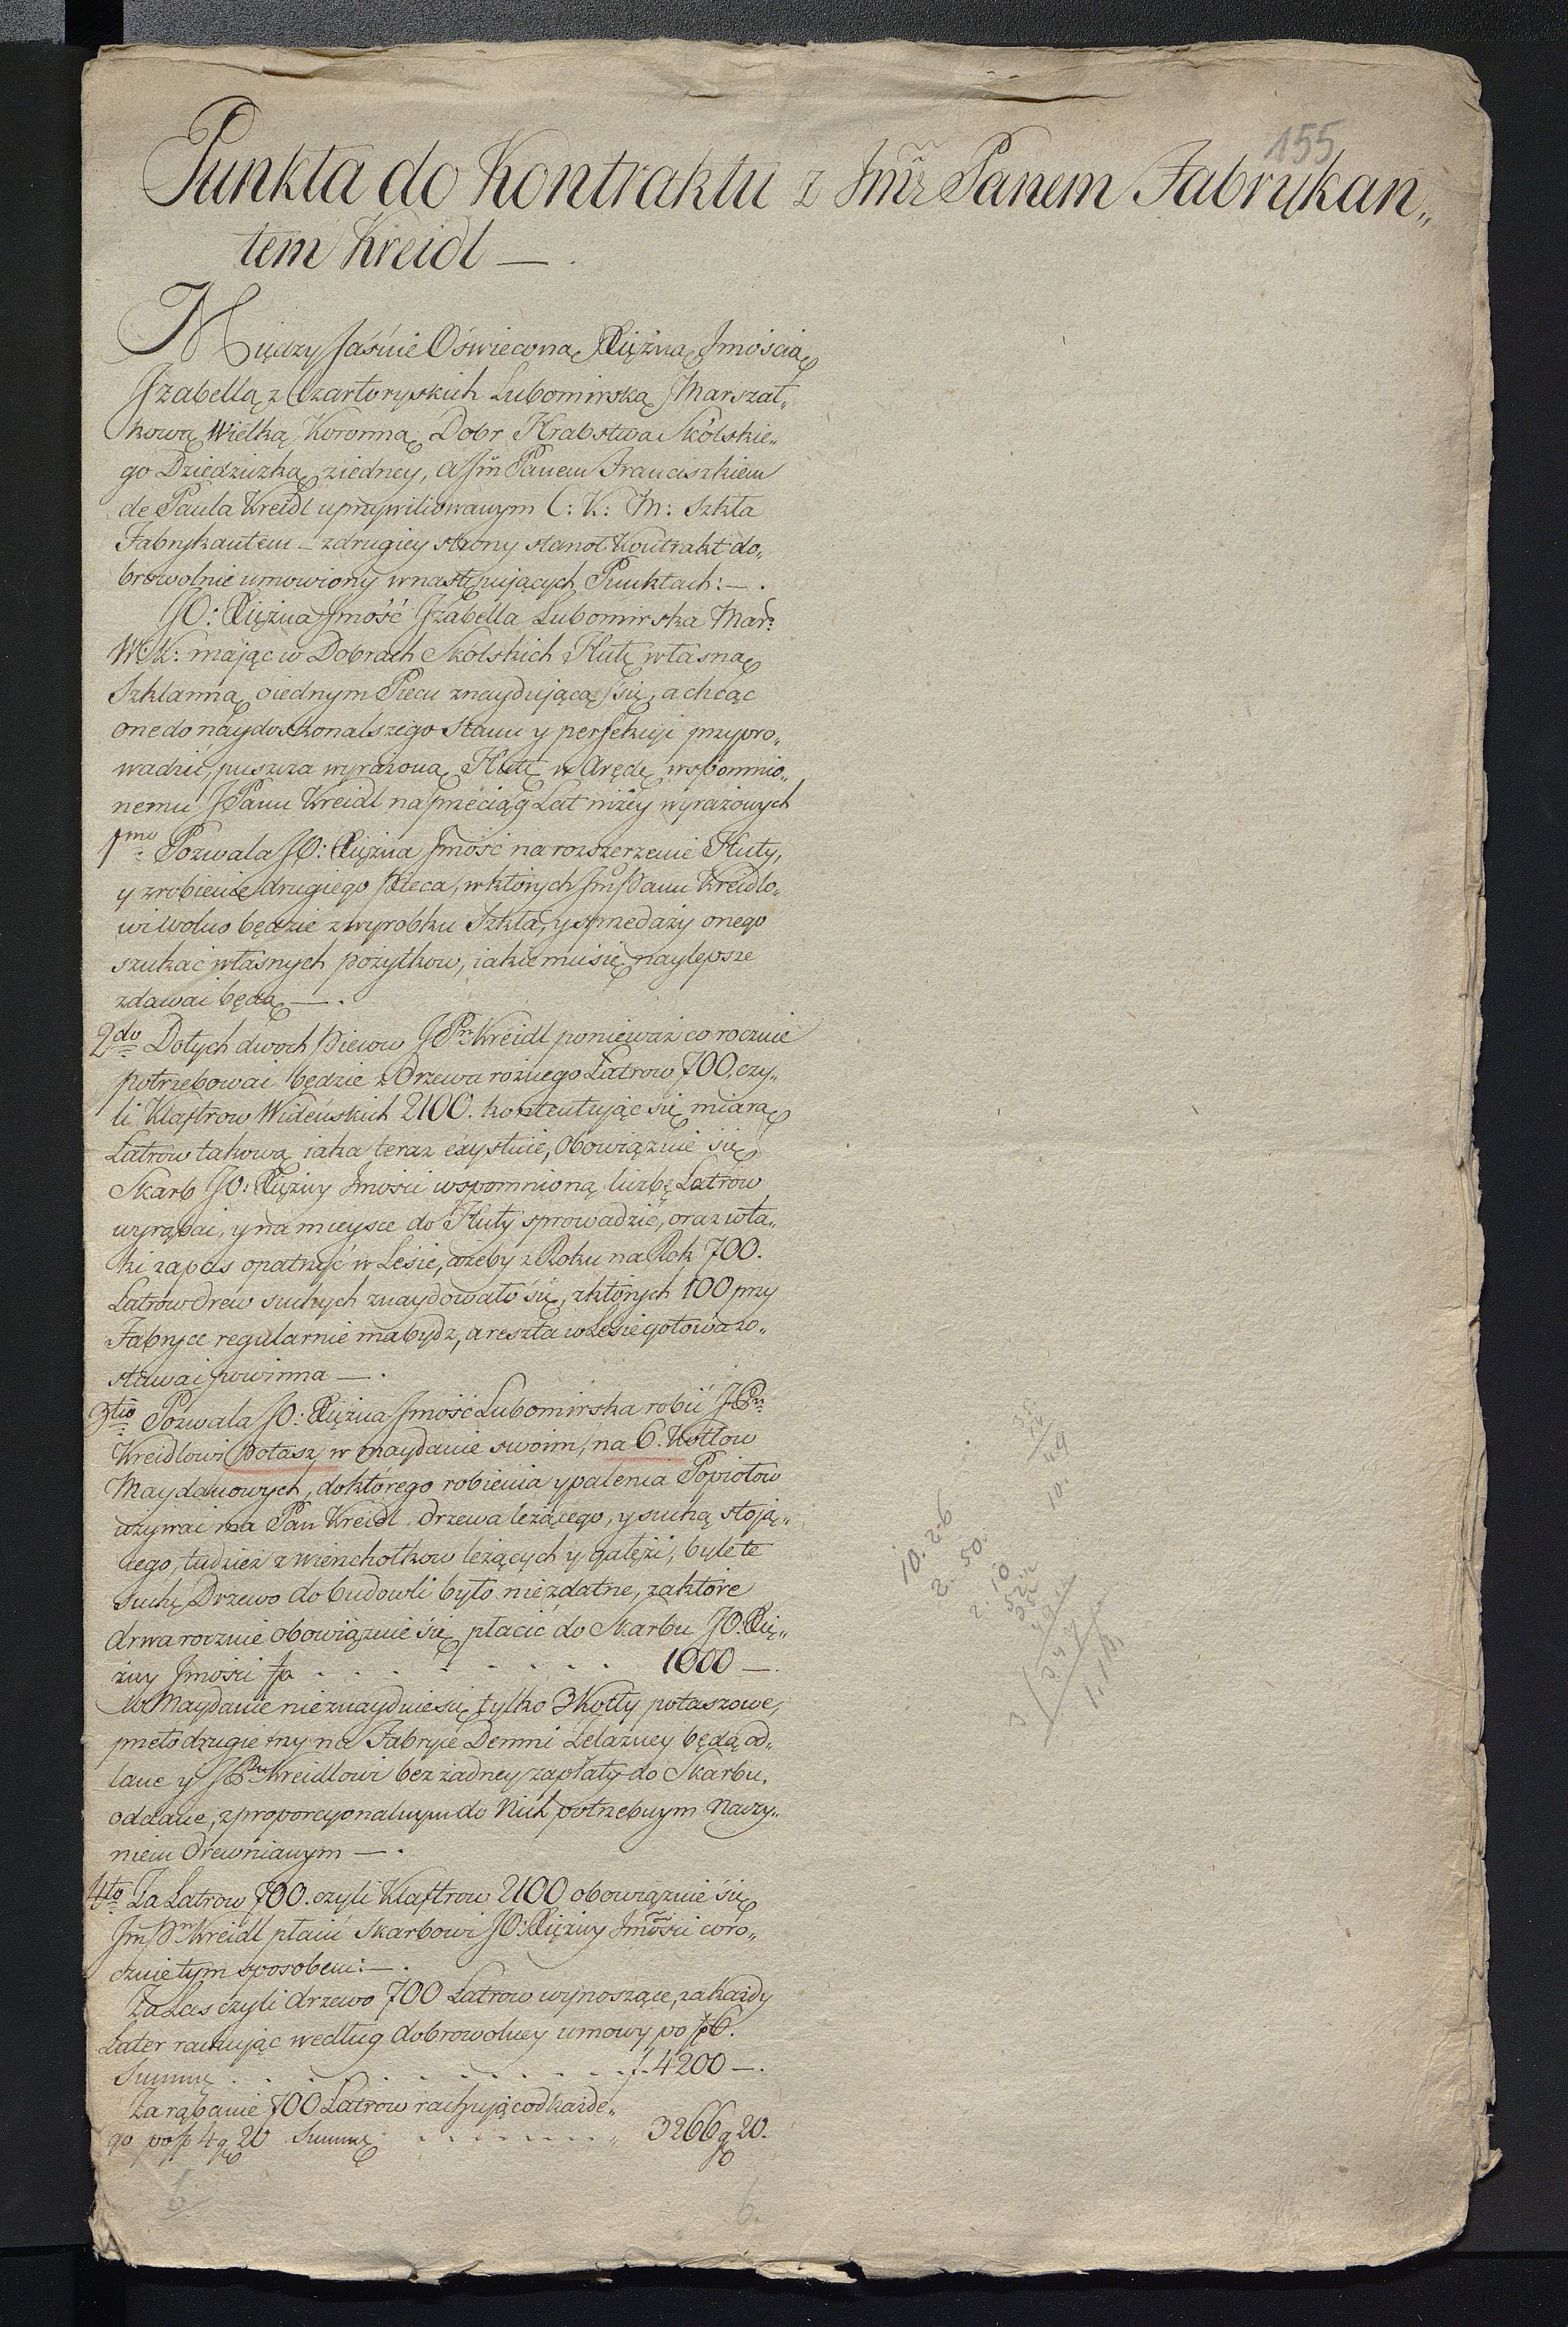 155
Punkta do Kontraktu z Jmć Panem Fabrykan„
tem Kreidl —.
Między Jaśnie Oświeconą Xiężną Jmoscią
Jzabellą z Czartoryskich Lubomirską Marszał„
kową Wielką Koronną Dobr Hrabstwa Skolskie„
go Dziedziczką ziedney, a Jm Panem Franciszkiem
de Paula Kreidl uprzywiliowanym C: K: M: Szkła
Fabrykantem – zdrugiey strony stanoł Kontrakt do„
browolnie umowiony wnastępujących Punktach: —.
JO: Xiężna Jmość Jzabella Lubomirska Mar:
W: K: mając w Dobrach Skolskich Hutę własną
Szklanną, oiednym Piecu znayduiącą się, a chcąc
one do naydoskonalszego stanu y perfekcyi przypro„
wadzić, puszcza wyrażoną Hutę w Arędę wspomnio„
nemu JPanu Kreidl na przeciąg Lat niżey wyrażonych
1mo Pozwala JO: Xiężna Jmość na rozszerzenie Huty,
y zrobienie drugiego Pieca, wktorych Jm Panu Kreidlo„
wi wolno będzie zwyrobku Szkła, y sprzedaży onego
szukać własnych pożytkow, iakie mu się naylepsze
zdawać będą —.
2do Do tych dwoch Piecow JPn Kreidl ponieważ co rocznie
potrzebować będzie z Drzewa rożnego Latrow 700. czy„
li Klaftrow Wideńskich 2100. kontentując się miarą
Latrow takową iaka teraz exystuie, Obowiązuie się
Skarb JO: Xiężny Jmości wspomnioną liczbę Latrow
wyrąbać, y na mieysce do Huty sprowadzić, oraz wta„
ki zapas opatrzyć w Lesie, ażeby z Roku na Rok 700.
Latrow Drew suchych znaydowało się, zktorych 100 przy
Fabryce regularnie ma bydz, a reszta w Lesie gotowa zo„
stawać powinna —.
3tio Pozwala JO: Xiężna Jmość Lubomirska robić JPn
Kreidlowi potasz w maydanie swoim, na 6. Kotłow
Maydanowych, do ktorego robienia y palenia Popiołow
używać ma Pan Kreidl Drzewa leżącego, y suchą stoją„
cego, tudzież z wierzchołkow leżących y gałęzi, byle te
suchę Drzewo do budowli było niezdatne, za ktore
drwa rocznie obowiązuie się płacić do Skarbu JO: Xię„
żny Jmości fp . . . . . . . . 1000 —.
w Maydanie nie znayduie się tylko 3 Kotły potaszowe,
przeto drugie trzy na Fabryce Demni Żelazney będą od„
lane y JPnu Kreidlowi bez żadney zapłaty do Skarbu,
oddane, z proporcyonalnym do Nich potrzebnym naczy„
niem drewnianym —.
4to Za Latrow 700. czyli Klaftrow 2100 obowiązuie się
Jm Pn Kreidl płacić Skarbowi JO: Xiężny Jmości coro„
cznie tym sposobem: —.
Za Las czyli drzewo 700 Latrow wynoszące, za każdy
Later rachując według dobrowolney umowy po fp 6.
Summę . . . . . . . . f. 4200 —.
Za rąbanie 700 Latrow rachując od każde„
go po fp 4 g 20 Summę . . . . . . „ 3266 g 20.